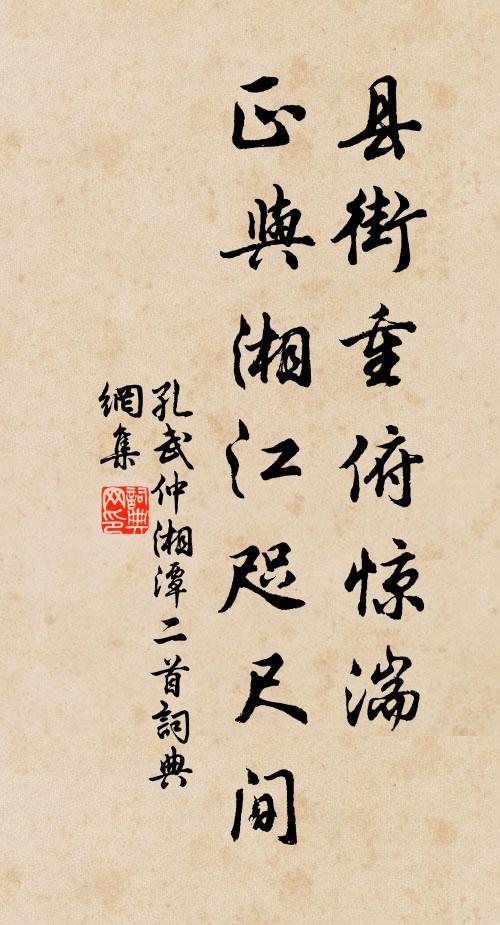 县街重俯惊湍
正与湘江咫尺间
孔武仲湘潭二首詞典
網集
詞典网印